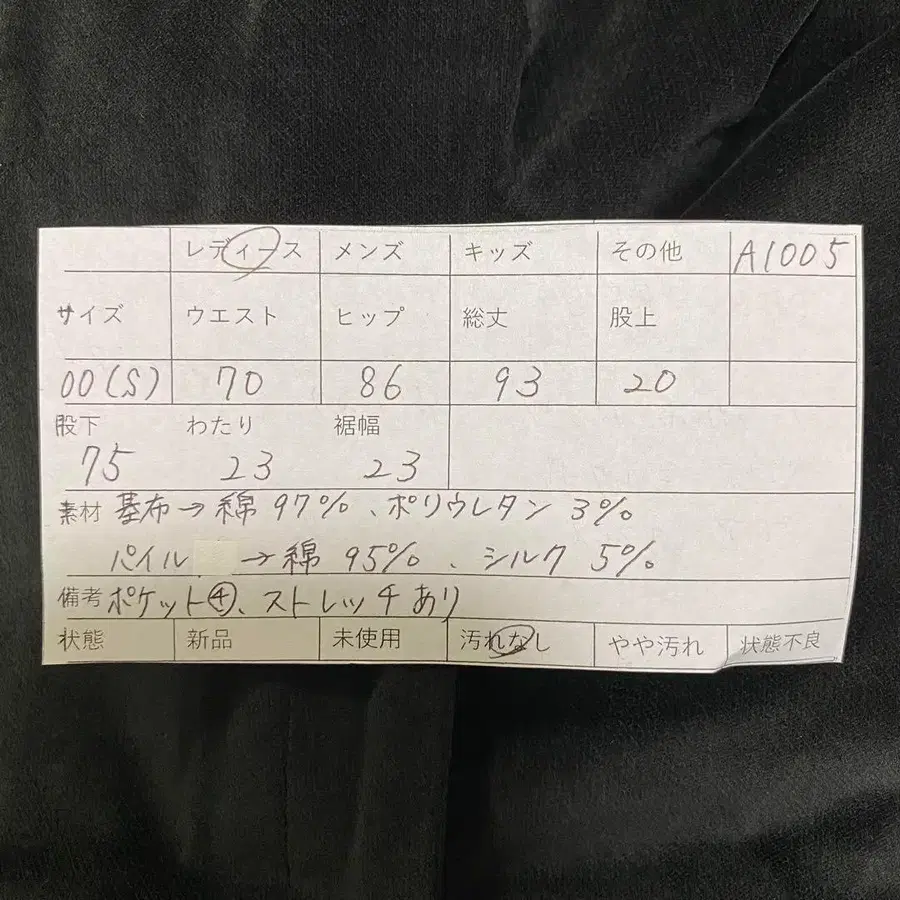 レディース メンズ キッズ その他 A1005
サイズ ウエスト ヒップ 総丈 股上
00(S) 70 86 93 20
股下 わたり 裾幅
75 23 23
素材 基布→綿97%、ポリウレタン 3%
パイル →綿 95%、シルク 5%
備考 ポケット④、ストレッチあり
状態 新品 未使用 汚れなし やや汚れ 状態不良